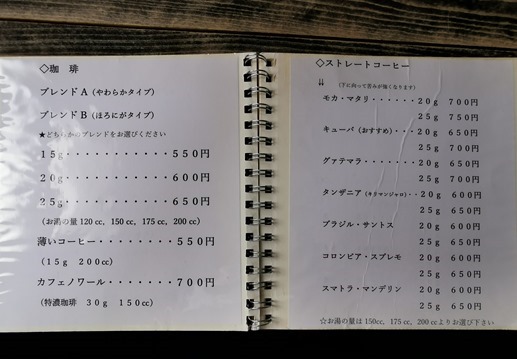 ◇珈 琲
ブレンドA (やわらかタイプ)
ブレンドB (ほろにがタイプ)
★どちらかのブレンドをお選びください
15g・・・・・・・・・・・550円
20g・・・・・・・・・・・600円
25g・・・・・・・・・・・650円
(お湯の量 120 cc, 150 cc, 175 cc, 200 cc)
薄いコーヒー・・・・・・・・550円
(15g 200cc)
カフェノワール・・・・・・・700円
(特濃珈琲 30g 150cc)
◇ストレートコーヒー
⇊ (下に向って苦みが強くなります)
モカ・マタリ・・・・・・20g 700円
25g 750円
キューバ (おすすめ)・・・20g 650円
25g 700円
グァテマラ・・・・・・・20g 650円
25g 700円
タンザニア (キリマンジャロ)・・20g 600円
25g 650円
ブラジル・サントス 20g 600円
25g 650円
コロンビア・スプレモ 20g 600円
25g 650円
スマトラ・マンデリン 20g 600円
25g 650円
☆お湯の量は 150cc, 175 cc, 200 cc よりお選び下さい